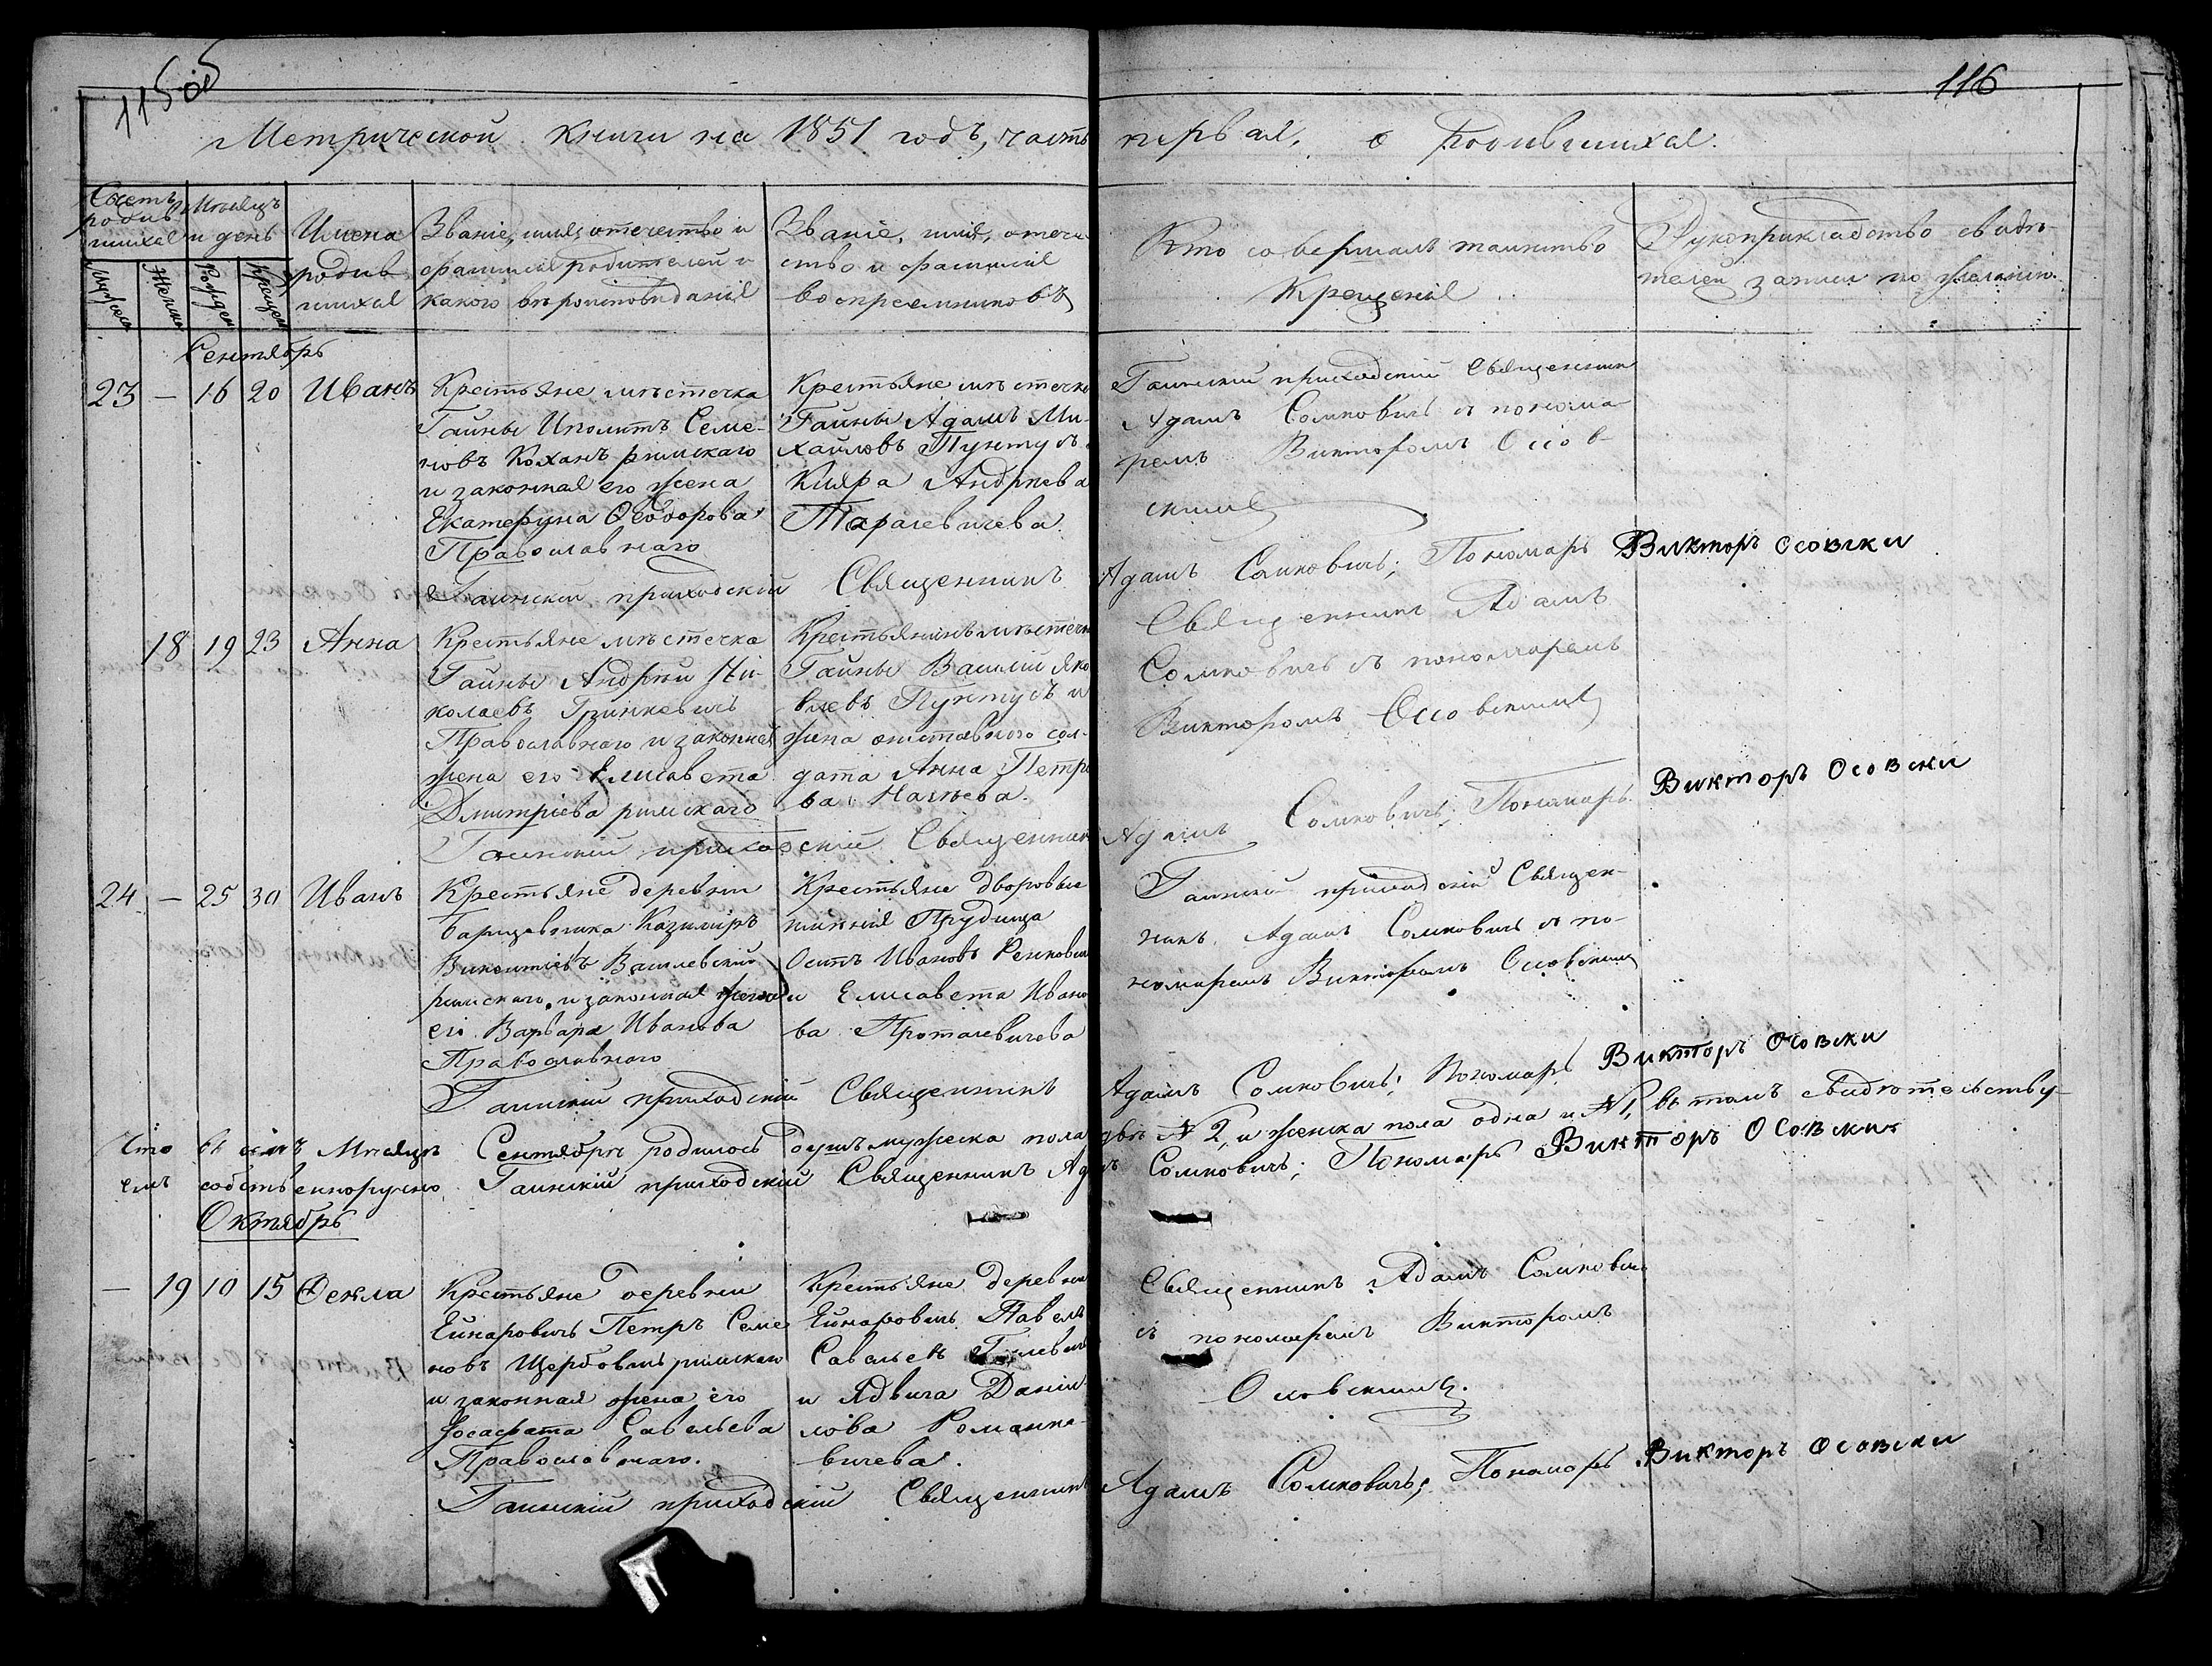 115 об
116
Метрической книги на 1851 годъ, часть первая, о родившихся.
Счетъ родив шихся
Мѣсяцъ и день
Имена родив шихся
Званіе, имя, отечество и фамилія родителей и какого вѣроисповѣданія
Званіе, имя, отече ство и фамилія воспреемниковъ
Кто совершалъ таинство Крещенія
Рукоприкладство свидѣ телей записи по желанію.
Мужеска
Женска
Рожден
Крещен
Сентябрь
23 — 16 20 Иванъ
Крестьяне мѣстечка
Гайны Иполитъ Семе-
новъ Коханъ римскаго
и законная его жена
Екатерина Ѳеодорова
Православнаго
Крестьяне мѣстечка
Гайны Адамъ Ми-
хайловъ Пунтусъ
Кияра Андреева
Тарасевичева
Гаинскій приходскій Священник
Адамъ Сомковичъ съ понома-
ремъ Викторомъ Оссов-
скимъ
Гаинскій приходскій Священникъ Адамъ Сомковичъ; Пономарь Викторъ Осовски
18 19 23 Анна
Крестьяне мѣстечка
Гайны Андрей Ни-
колаевъ Гринкевичъ
Православнаго и законная
жена его Елисавета
Дмитріева римскаго
Крестьянинъ мѣстечка
Гайны Василій Яко
влевъ Пунтусъ и
жена отставного сол-
дата Анна Петро
ва
Священникъ Адамъ
Сомковичъ съ пономаремъ
Викторомъ Оссовскимъ
Гаинскій приходскій Священник Адамъ Сомковичъ, Пономарь Викторъ Осовски
24 — 25 30 Иванъ
Крестьяне деревни
Барсуковника Казиміръ
Викентіевъ Василевскій
римскаго и законная жена
его Варвара Иванова
Православнаго
Крестьяне дворовые
имѣнія Прудища
Осипъ Ивановъ Ренкович
и Елисавета Ивано
ва Протасевичева
Гаинскій приходскій Священ-
никъ Адамъ Сомковичъ съ по-
номаремъ Викторомъ Оссовскимъ
Гаинскій приходскій Священникъ Адамъ Сомковичъ; Пономарь Викторъ Осовски
Что въ семъ Мѣсяцѣ Сентябрѣ родилось душъ мужеска пола двѣ № 2, и женска пола одна и № 1, въ томъ свидѣтельству-
емъ собственноручно Гаинскій приходскій Священникъ Адамъ Сомковичъ; Пономарь Викторъ Осовски
Октябрь
— 19 10 15 Ѳекла
Крестьяне деревни
Гинаровичъ Петръ Семе
новъ Щербовичъ римскаго
и законная жена его
Іосафата Савельева
Православнаго.
Крестьяне деревни
Гинаровичъ Павелъ
Савельевъ
и Ядвига Данiи
лова Романке-
вичева.
Священникъ Адамъ Сомкович
съ пономаремъ Викторомъ
Оссовскимъ.
Гаинскій приходскій Священник Адамъ Сомковичъ; Пономарь Викторъ Осовски